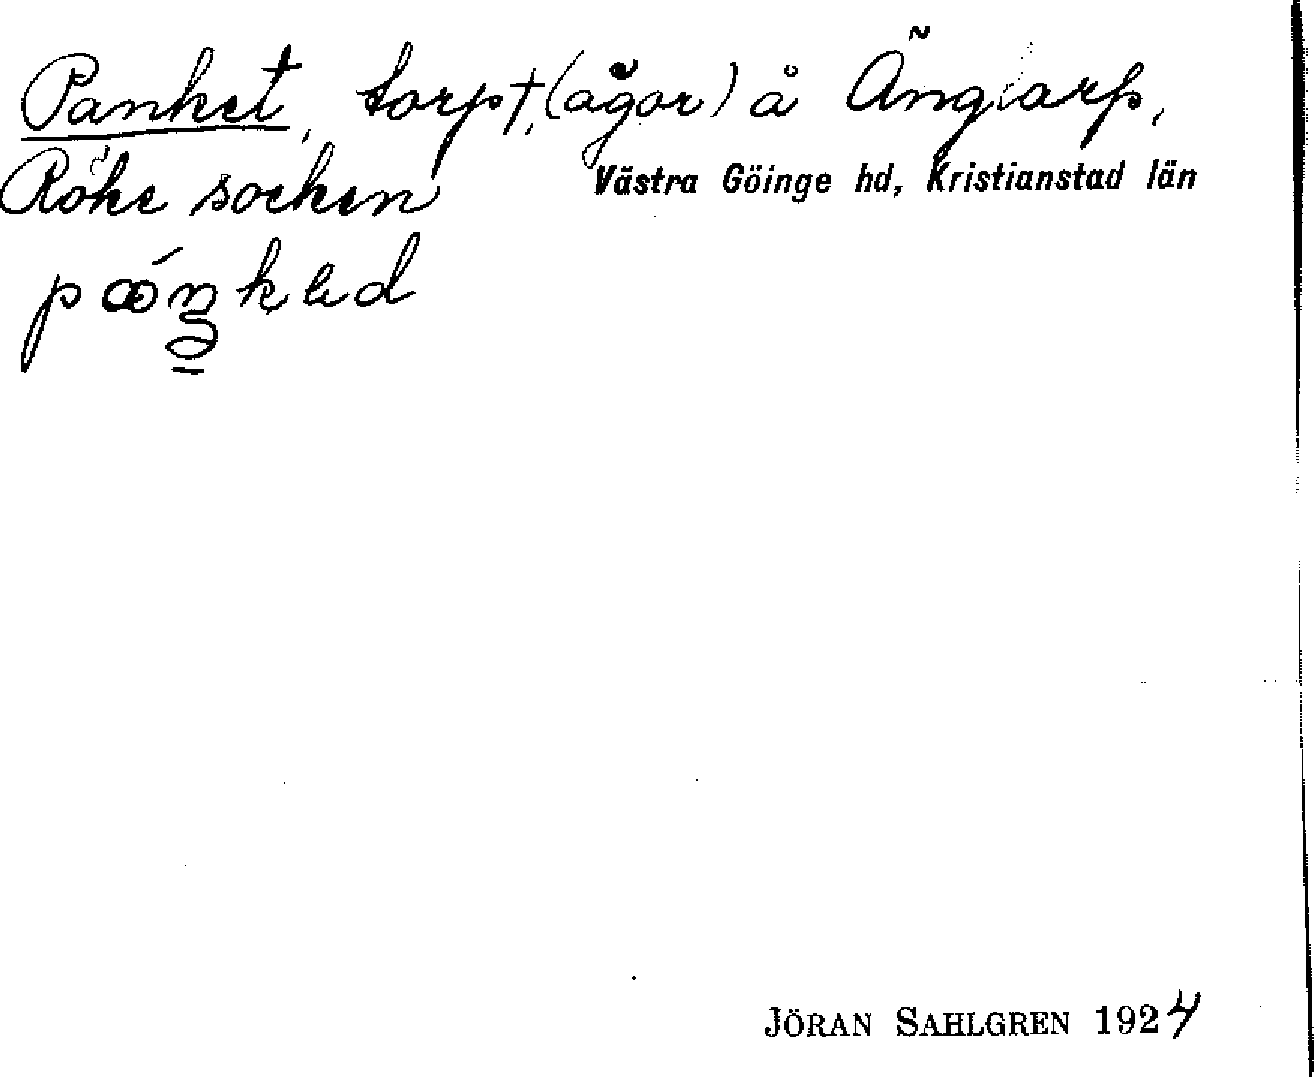 Panket, torp †, (ägor) å Änglarp,
Röke socken Västra Göinge hd, Kristianstad län
JÖRAN SAHLGREN 1924